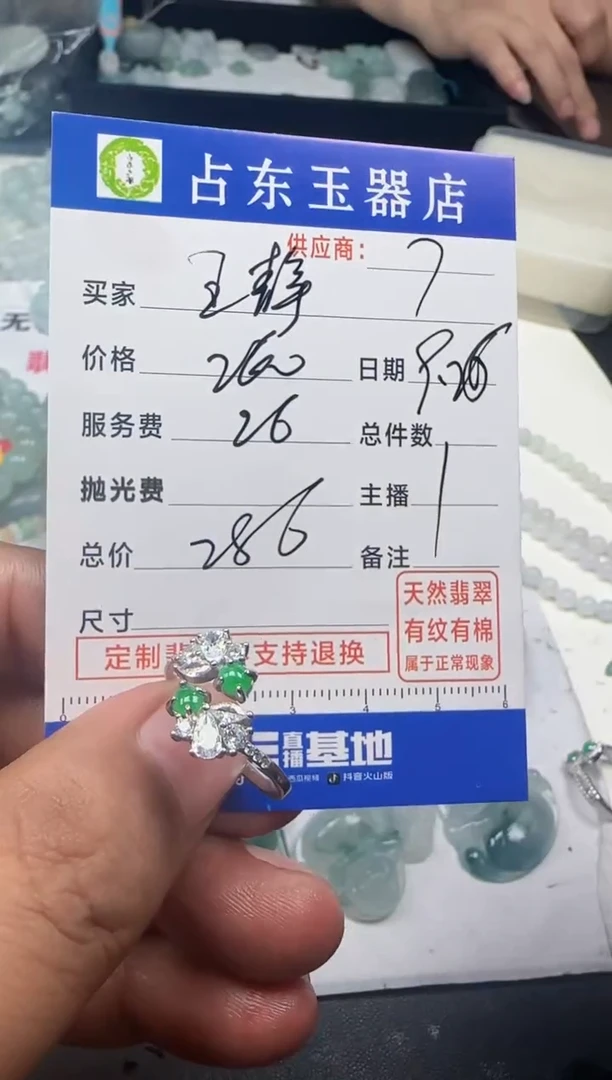 占东玉器店
供应商: 7
买家 王静
价格 260 日期 9.26
服务费 26 总件数
抛光费 主播
总价 286 备注
尺寸
天然翡翠
有纹有棉
属于正常现象
定制 支持退换
直播基地
抖音火山版
无